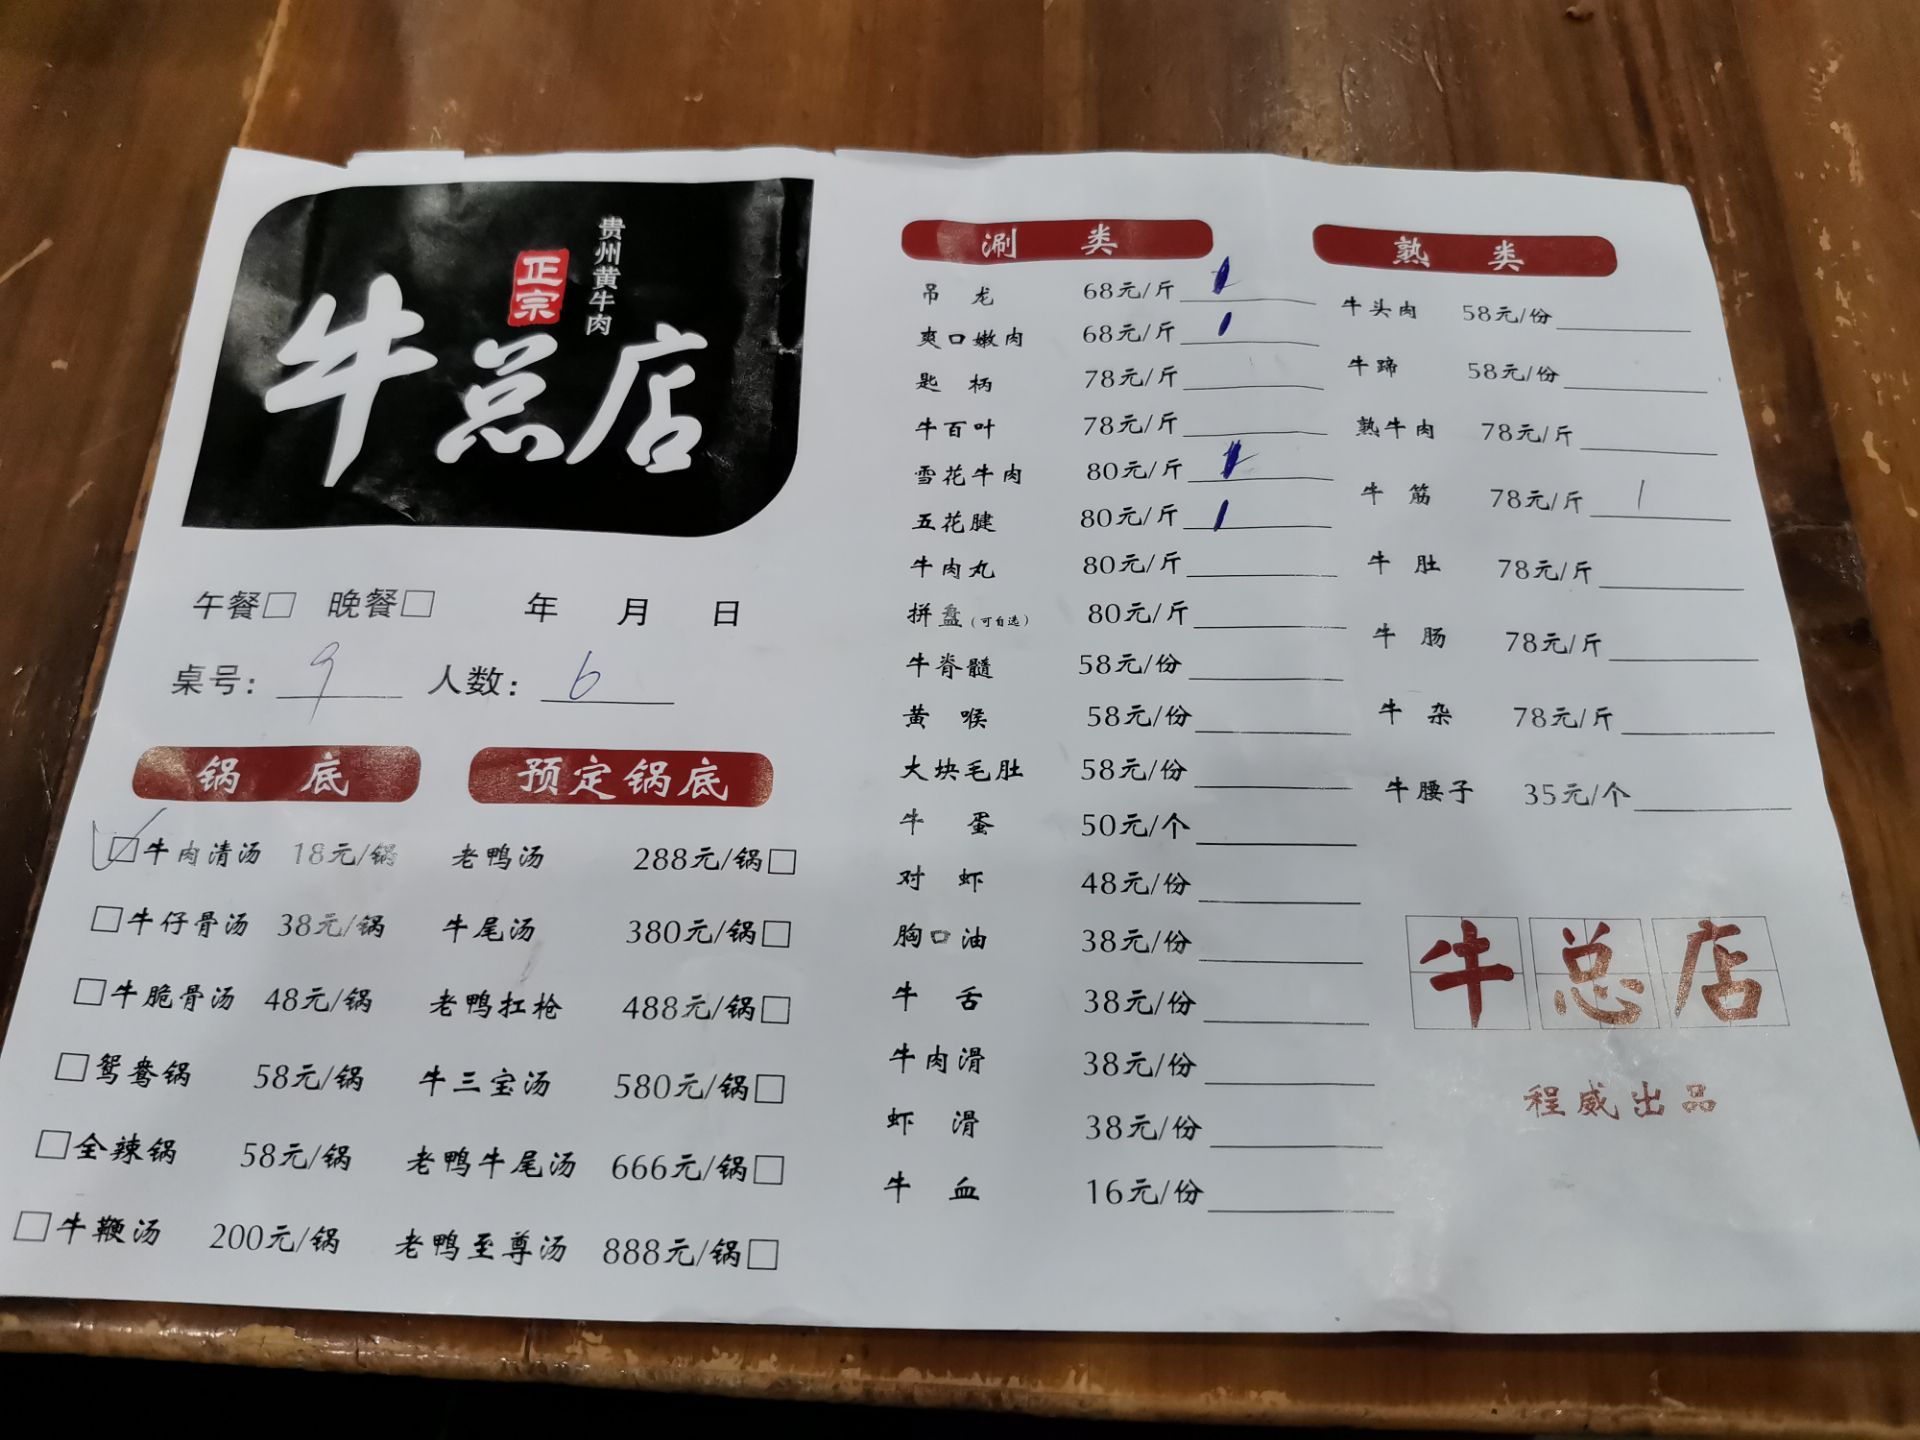 贵州黄牛肉
正宗
牛总店
午餐□ 晚餐□ 年 月 日
桌号: 9 人数: 6
锅 底
□牛肉清汤 18元/锅
□牛仔骨汤 38元/锅
□牛脆骨汤 48元/锅
□鸳鸯锅 58元/锅
□全辣锅 58元/锅
□牛鞭汤 200元/锅
预定锅底
老鸭汤 288元/锅□
牛尾汤 380元/锅□
老鸭扛枪 488元/锅□
牛三宝汤 580元/锅□
老鸭牛尾汤 666元/锅□
老鸭至尊汤 888元/锅□
涮 类
吊 龙 68元/斤 1
爽口嫩肉 68元/斤 1
匙 柄 78元/斤
牛百叶 78元/斤
雪花牛肉 80元/斤 1
五花腱 80元/斤 1
牛肉丸 80元/斤
拼盘(可自选) 80元/斤
牛脊髓 58元/份
黄 喉 58元/份
大块毛肚 58元/份
牛 蛋 50元/个
对 虾 48元/份
胸口油 38元/份
牛 舌 38元/份
牛肉滑 38元/份
虾 滑 38元/份
牛 血 16元/份
熟 类
牛头肉 58元/份
牛蹄 58元/份
熟牛肉 78元/斤
牛 筋 78元/斤 1
牛 肚 78元/斤
牛 肠 78元/斤
牛 杂 78元/斤
牛腰子 35元/个
牛总店
程威出品